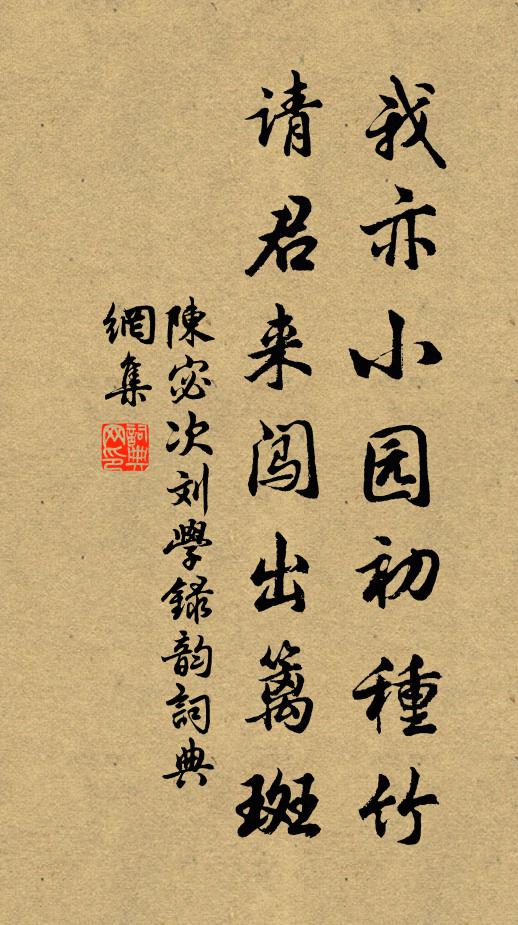 我亦小园初種竹
请君来闯出篱斑
陳宓次刘學録韵詞典
網集
詞典网印